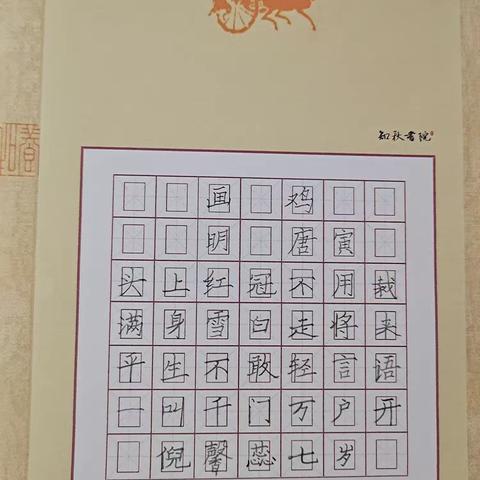 知秋書院
画鸡
明唐寅
头上红冠不用裁
满身雪白走将来
平生不敢轻言语
一叫千门万户开
倪馨蕊七岁